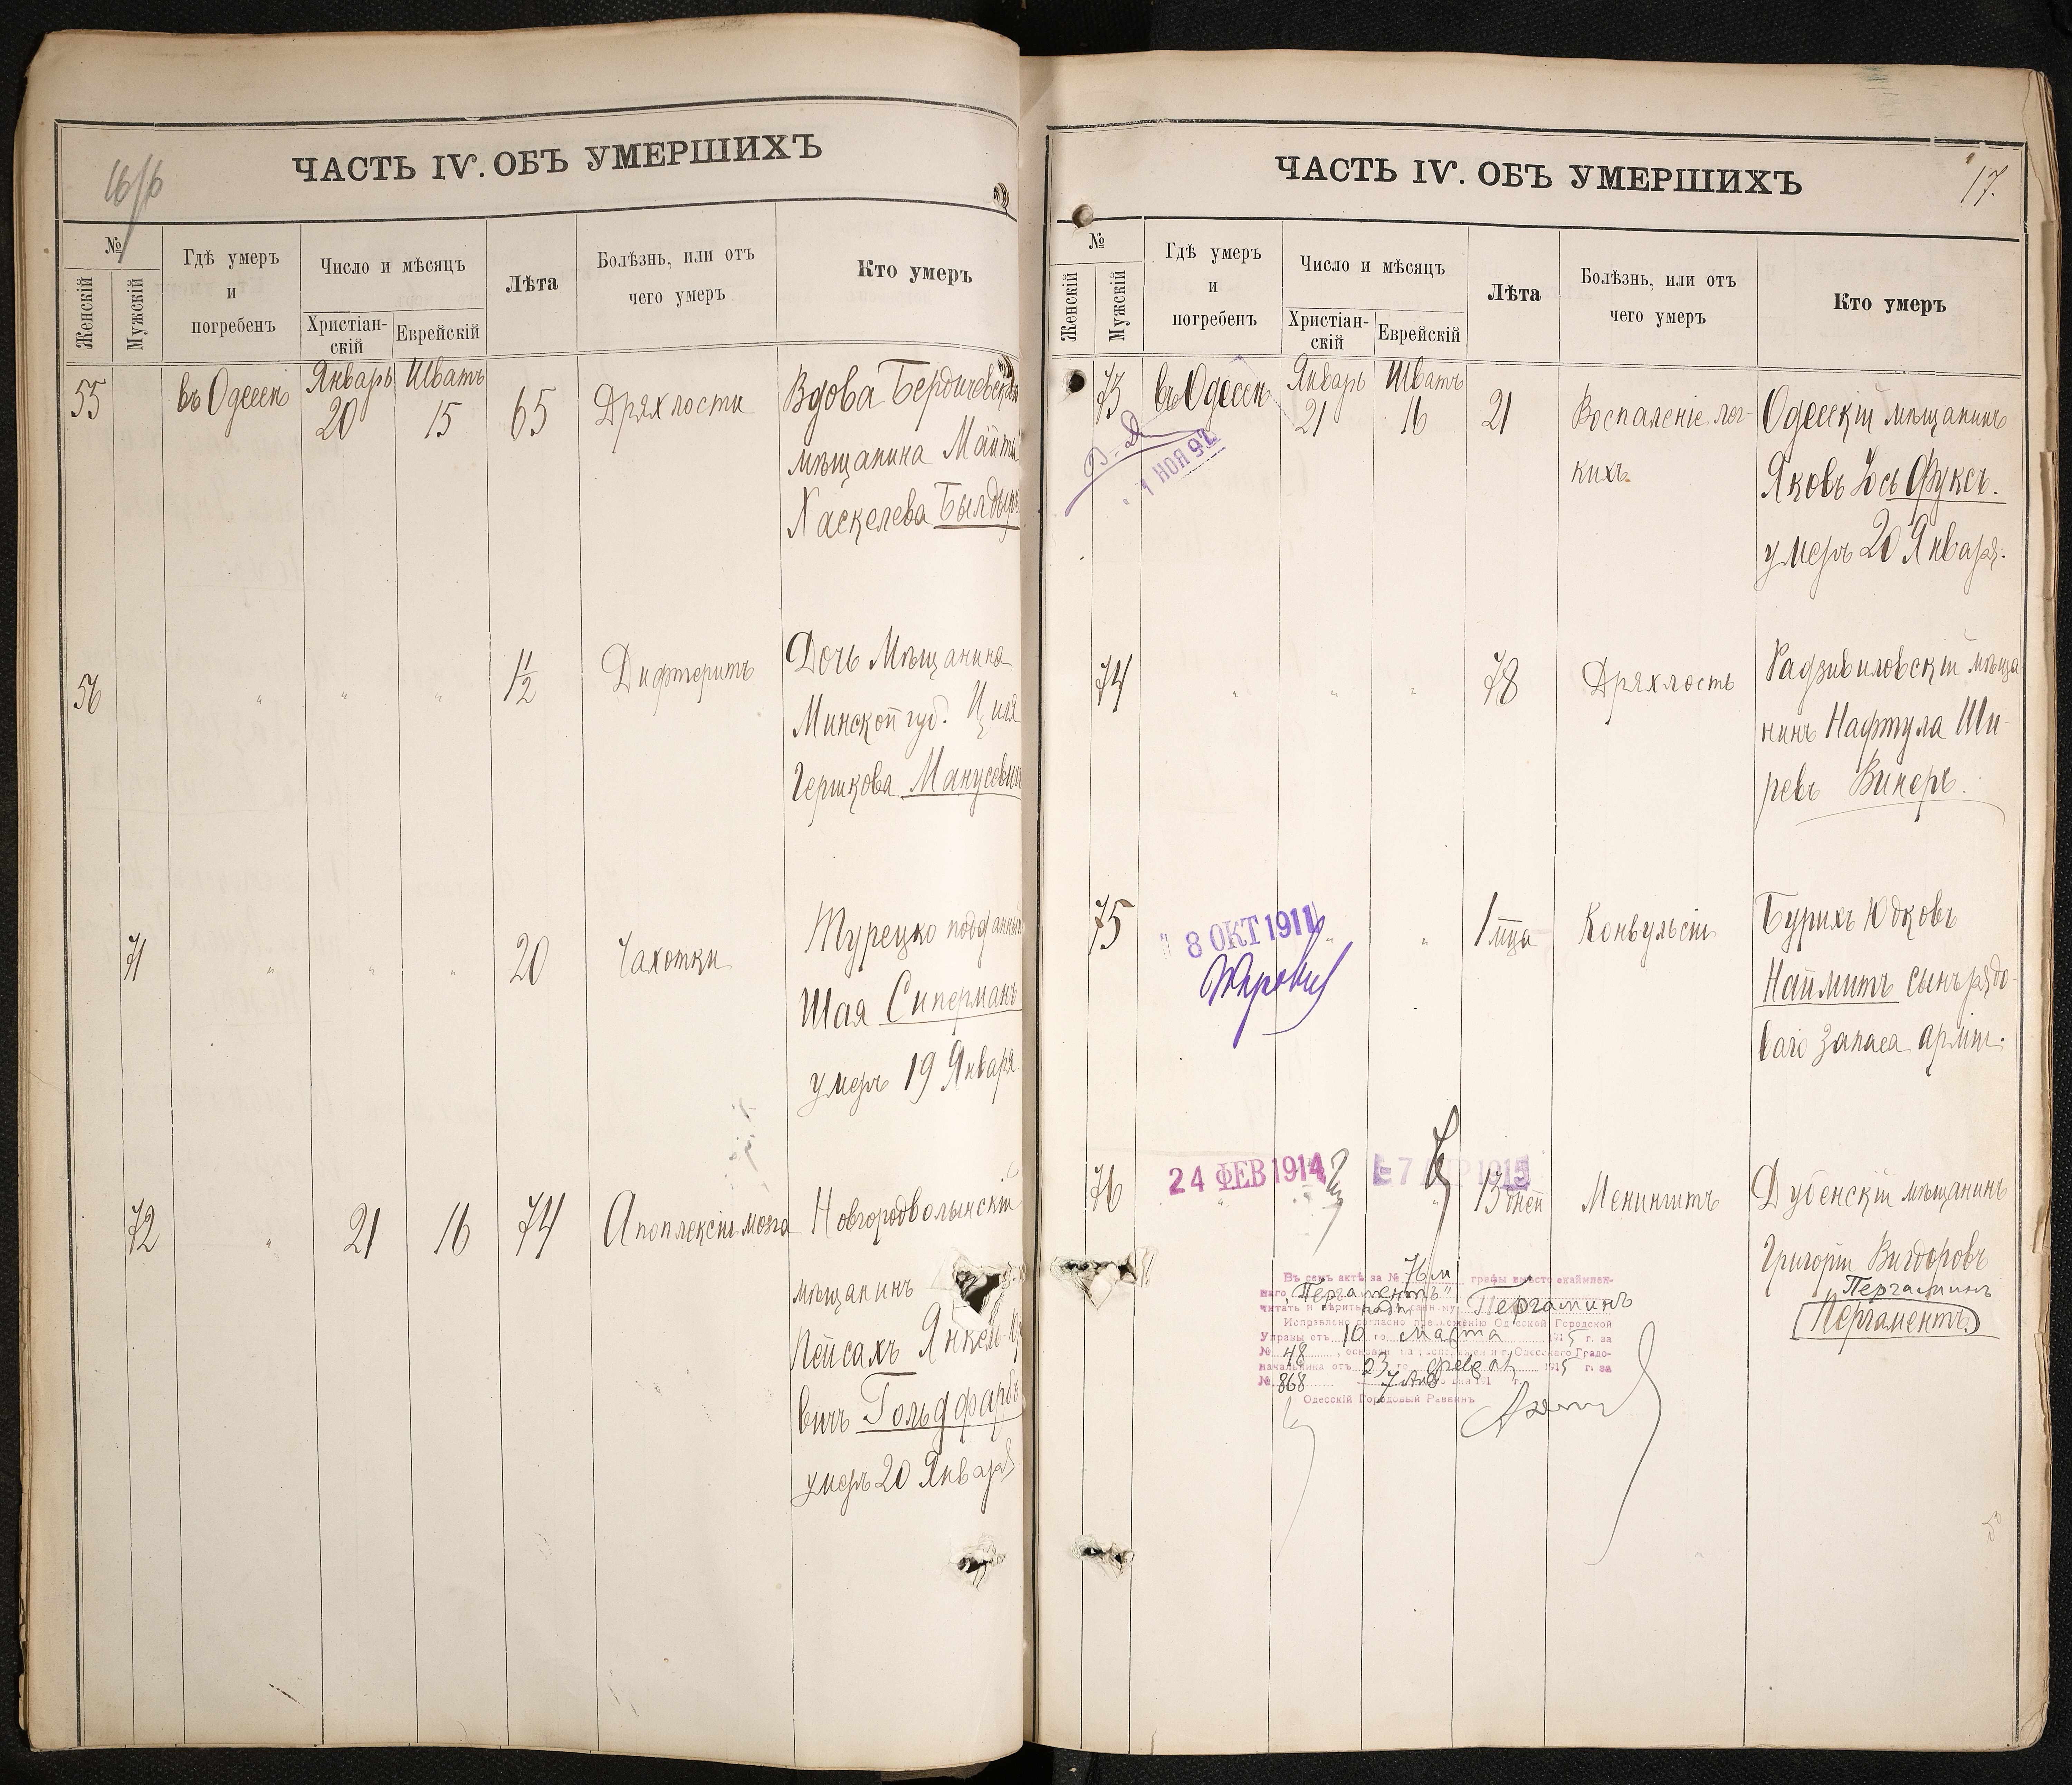 16/16
ЧАСТЬ IV. ОБЪ УМЕРШИХЪ
№
Женскій
Мужскій
Гдѣ умеръ
и
погребенъ
Число и мѣсяцъ
Христіан-
скій
Еврейскій
Лѣта
Болѣзнь, или отъ
чего умеръ
Кто умеръ
55 въ Одессѣ Январь 20 Шватъ 15 65 Дряхлости Вдова Бердичевск
мѣщанина Майта
Хаскелева Былдыр
56 " " " 1½ Дифтеритъ Дочь Мѣщанина
Минской губ. Циля
Гершкова Манусеви
71 " " " 20 Чахотки Турецко подданный
Шая Сиперманъ
умеръ 19 Января
72 " 21 16 74 Апоплексіи мозга Новгородволынскій
мѣщанинъ
Пейсахъ Янкел
вичъ Гольдфарбъ
умеръ 20 Января
ЧАСТЬ IV. ОБЪ УМЕРШИХЪ
17.
№
Женскій
Мужскій
Гдѣ умеръ
и
погребенъ
Число и мѣсяцъ
Христіан-
скій
Еврейскій
Лѣта
Болѣзнь, или отъ
чего умеръ
Кто умеръ
73 въ Одессѣ Январь 21 Шватъ 16 21 Воспаленіе лег-
кихъ.
Одесскій мѣщанинъ
Яковъ Іось Фуксъ.
умеръ 20 Января.
1 НОЯ 92
74 " " " 78 Дряхлость Радзивиловскій мѣща
нинъ Нафтула Ши-
ревъ Винеръ.
75 " " 1 мца Конвульсіи Бурихъ Юдковъ
Наймитъ сынъ рядо-
ваго запаса арміи.
8 ОКТ 1911
76 " " 13 дней Менингитъ Дубенскій мѣщанинъ
Григорій Вигдоровъ
Пергаминъ
(Пергаментъ)
24 ФЕВ 1914
7 АПР 1915
Въ семъ актѣ за № 76 м графы вмѣсто окаймлен-
наго "Пергаментъ"
читать и вѣрить надписанному Пергаминъ
Исправлено согласно предложенію Одесской Городской
Управы отъ 10 го марта 1915 г. за
№ 48, основан. на распоряженіи г. Одесскаго Градо-
начальника отъ 23 го февраля 1915 г. за
№ 868
Одесскій Городовый Раввинъ